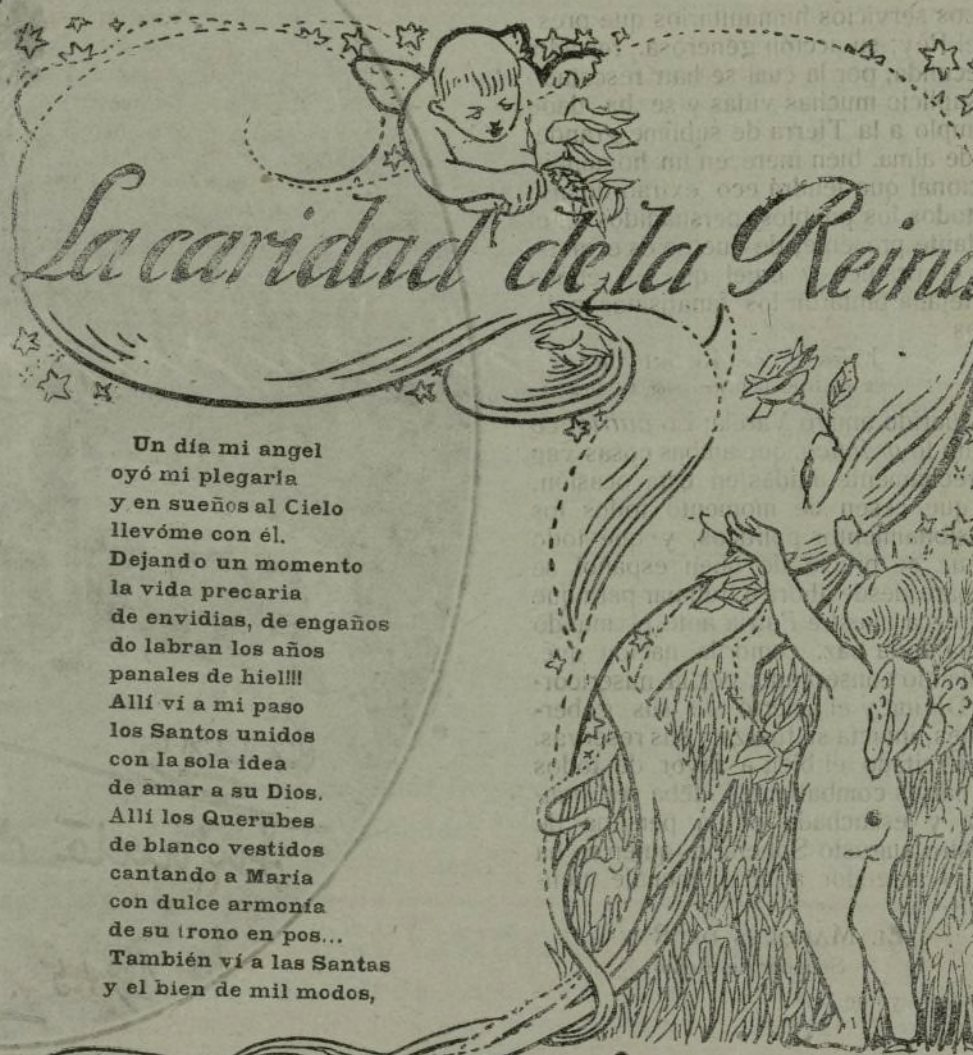 La caridad de la Reina
Un día mi angel
oyó mi plegaria
y en sueños al Cielo
llevóme con él.
Dejando un momento
la vida precaria
de envidias, de engaños
do labran los años
panales de hiel!!!
Allí ví a mi paso
los Santos unidos
con la sola idea
de amar a su Dios.
Allí los Querubes
de blanco vestidos
cantando a María
con dulce armonía
de su trono en pos...
También ví a las Santas
y el bien de mil modos,